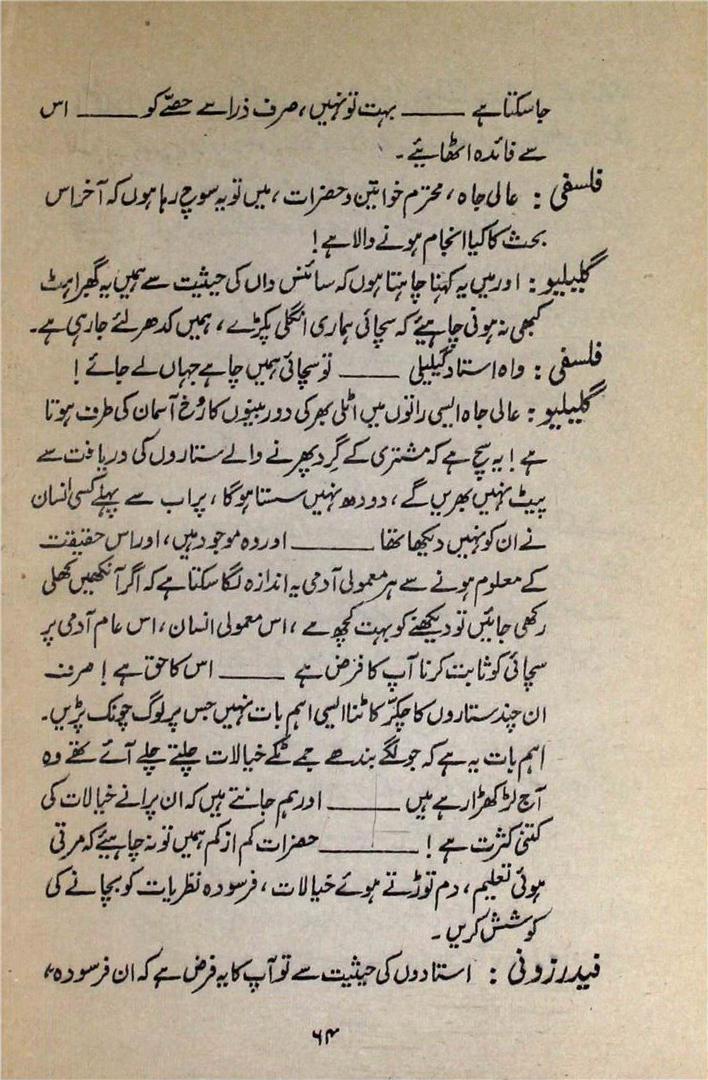 جاسکتا ہے ——— بہت تو نہیں، صرف ذرا سے حصّے کو ——— اس
سے فائدہ اٹھایئے۔
فلسفی : عالی جاہ، محترم خواتین و حضرات، میں تو یہ سوچ رہا ہوں کہ آخر اس
بحث کا کیا انجام ہونے والا ہے!
گلیلیو : اور میں یہ کہنا چاہتا ہوں کہ سائنس داں کی حیثیت سے ہمیں یہ گھبراہٹ
کبھی نہ ہونی چاہیئے کہ سچائی ہماری انگلی پکڑے، ہمیں کدھر لئے جارہی ہے۔
فلسفی : واہ استاد گیلیلی ——— تو سچائی ہمیں چاہے جہاں لے جائے!
گلیلیو : عالی جاہ ایسی راتوں میں اٹلی بھر کی دوربینوں کا رُخ آسمان کی طرف ہوتا
ہے! یہ سچ ہے کہ مشتری کے گرد پھرنے والے ستاروں کی دریافت سے
پیٹ نہیں بھریں گے، دودھ نہیں سستا ہوگا، پر اب سے پہلے کسی انسان
نے ان کو نہیں دیکھا تھا ——— اور وہ موجود ہیں، اور اس حقیقت
کے معلوم ہونے سے ہر معمولی آدمی یہ اندازہ لگا سکتا ہے کہ اگر آنکھیں کھلی
رکھی جائیں تو دیکھنے کو بہت کچھ ہے، اس معمولی انسان، اس عام آدمی پر
سچائی کو ثابت کرنا آپ کا فرض ہے ——— اس کا حق ہے! صرف
ان چند ستاروں کا چکّر کاٹنا ایسی اہم بات نہیں جس پر لوگ چونک پڑیں۔
اہم بات یہ ہے کہ جو لگے بندھے جمے ٹکے خیالات چلتے چلے آئے تھے وہ
آج لڑکھڑا رہے ہیں ——— اور ہم جانتے ہیں کہ ان پرانے خیالات کی
کتنی کثرت ہے! ——— حضرات کم از کم ہمیں تو نہ چاہیئے کہ مرتی
ہوئی تعلیم، دم توڑتے ہوئے خیالات، فرسودہ نظریات کو بچانے کی
کوشش کریں۔
فیدرزونی : استادوں کی حیثیت سے تو آپ کا یہ فرض ہے کہ ان فرسودہ،
۶۴